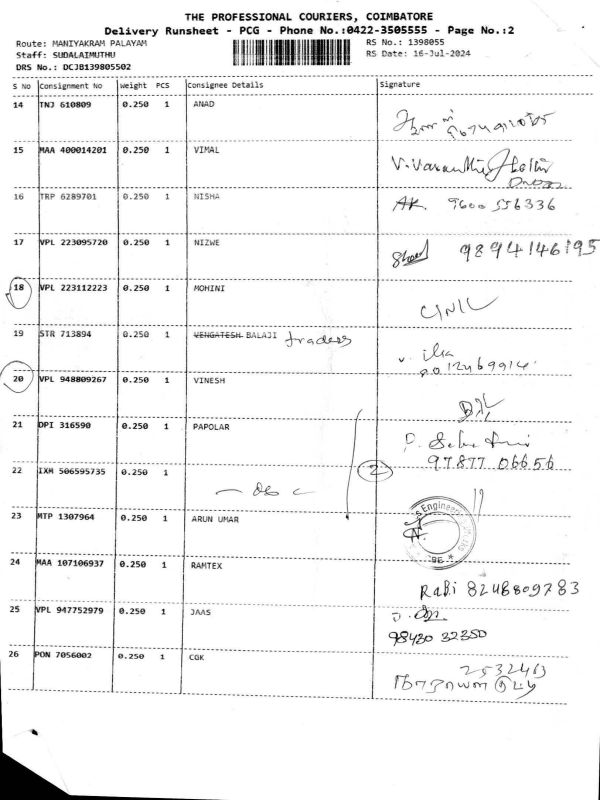 THE PROFESSIONAL COURIERS, COIMBATORE
Delivery Runsheet - PCG - Phone No.:0422-3505555 - Page No.:2
Route: MANIYAKRAM PALAYAM RS No.: 1398055
Staff: SUDALAIMUTHU RS Date: 16-Jul-2024
DRS No.: DCJB139805502
S No Consignment No Weight PCS Consignee Details Signature
14 TNJ 610809 0.250 1 ANAD
15 MAA 400014201 0.250 1 VIMAL
16 TRP 6289701 0.250 1 NISHA AK. 9600 556336
17 VPL 223095720 0.250 1 NIZWE 9894146195
18 VPL 223112223 0.250 1 MOHINI
19 STR 713894 0.250 1 VENGATESH BALAJI traders
20 VPL 948809267 0.250 1 VINESH
21 DPI 316590 0.250 1 PAPOLAR
97877 06656
22 IXM 506595735 0.250 1 2
23 MTP 1307964 0.250 1 ARUN UMAR
24 MAA 107106937 0.250 1 RAMTEX
RaBi 8248809783
25 VPL 947752979 0.250 1 JAAS
98430 32350
26 PON 7056002 0.250 1 CGK